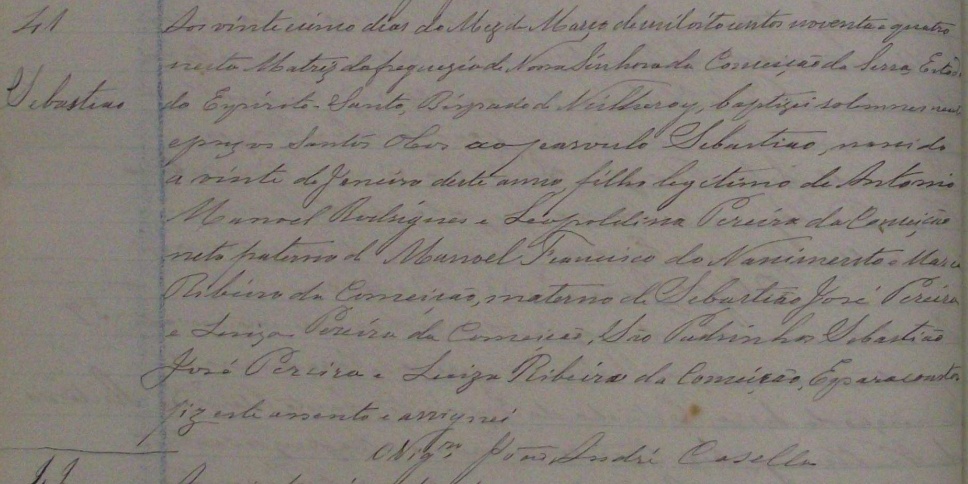 41
Aos vinte cinco dias do Mez de Março de mil oito centos noventa e quatro
nesta Matriz da freguezia de Nossa Senhora da Conceição da Serra, Estado
Sebastião
do Espirito-Santo, Bispado de Nictheroy, baptizei solemnemente
e puz os Santos Oleos ao parvulo Sebastião, nascido
a vinte de Janeiro deste anno, filho legitimo de Antonio
Manoel Rodrigues e Leopoldina Pereira da Conceição
neto paterno de Manoel Francisco do Nascimento e Maria
Ribeiro da Conceição, materno de Sebastião José Pereira
e Luiza Pereira da Conceição, São Padrinhos Sebastião
José Pereira e Luiza Ribeira da Conceição, E para constar
fiz este assento e assignei
O Vigº João André Casella